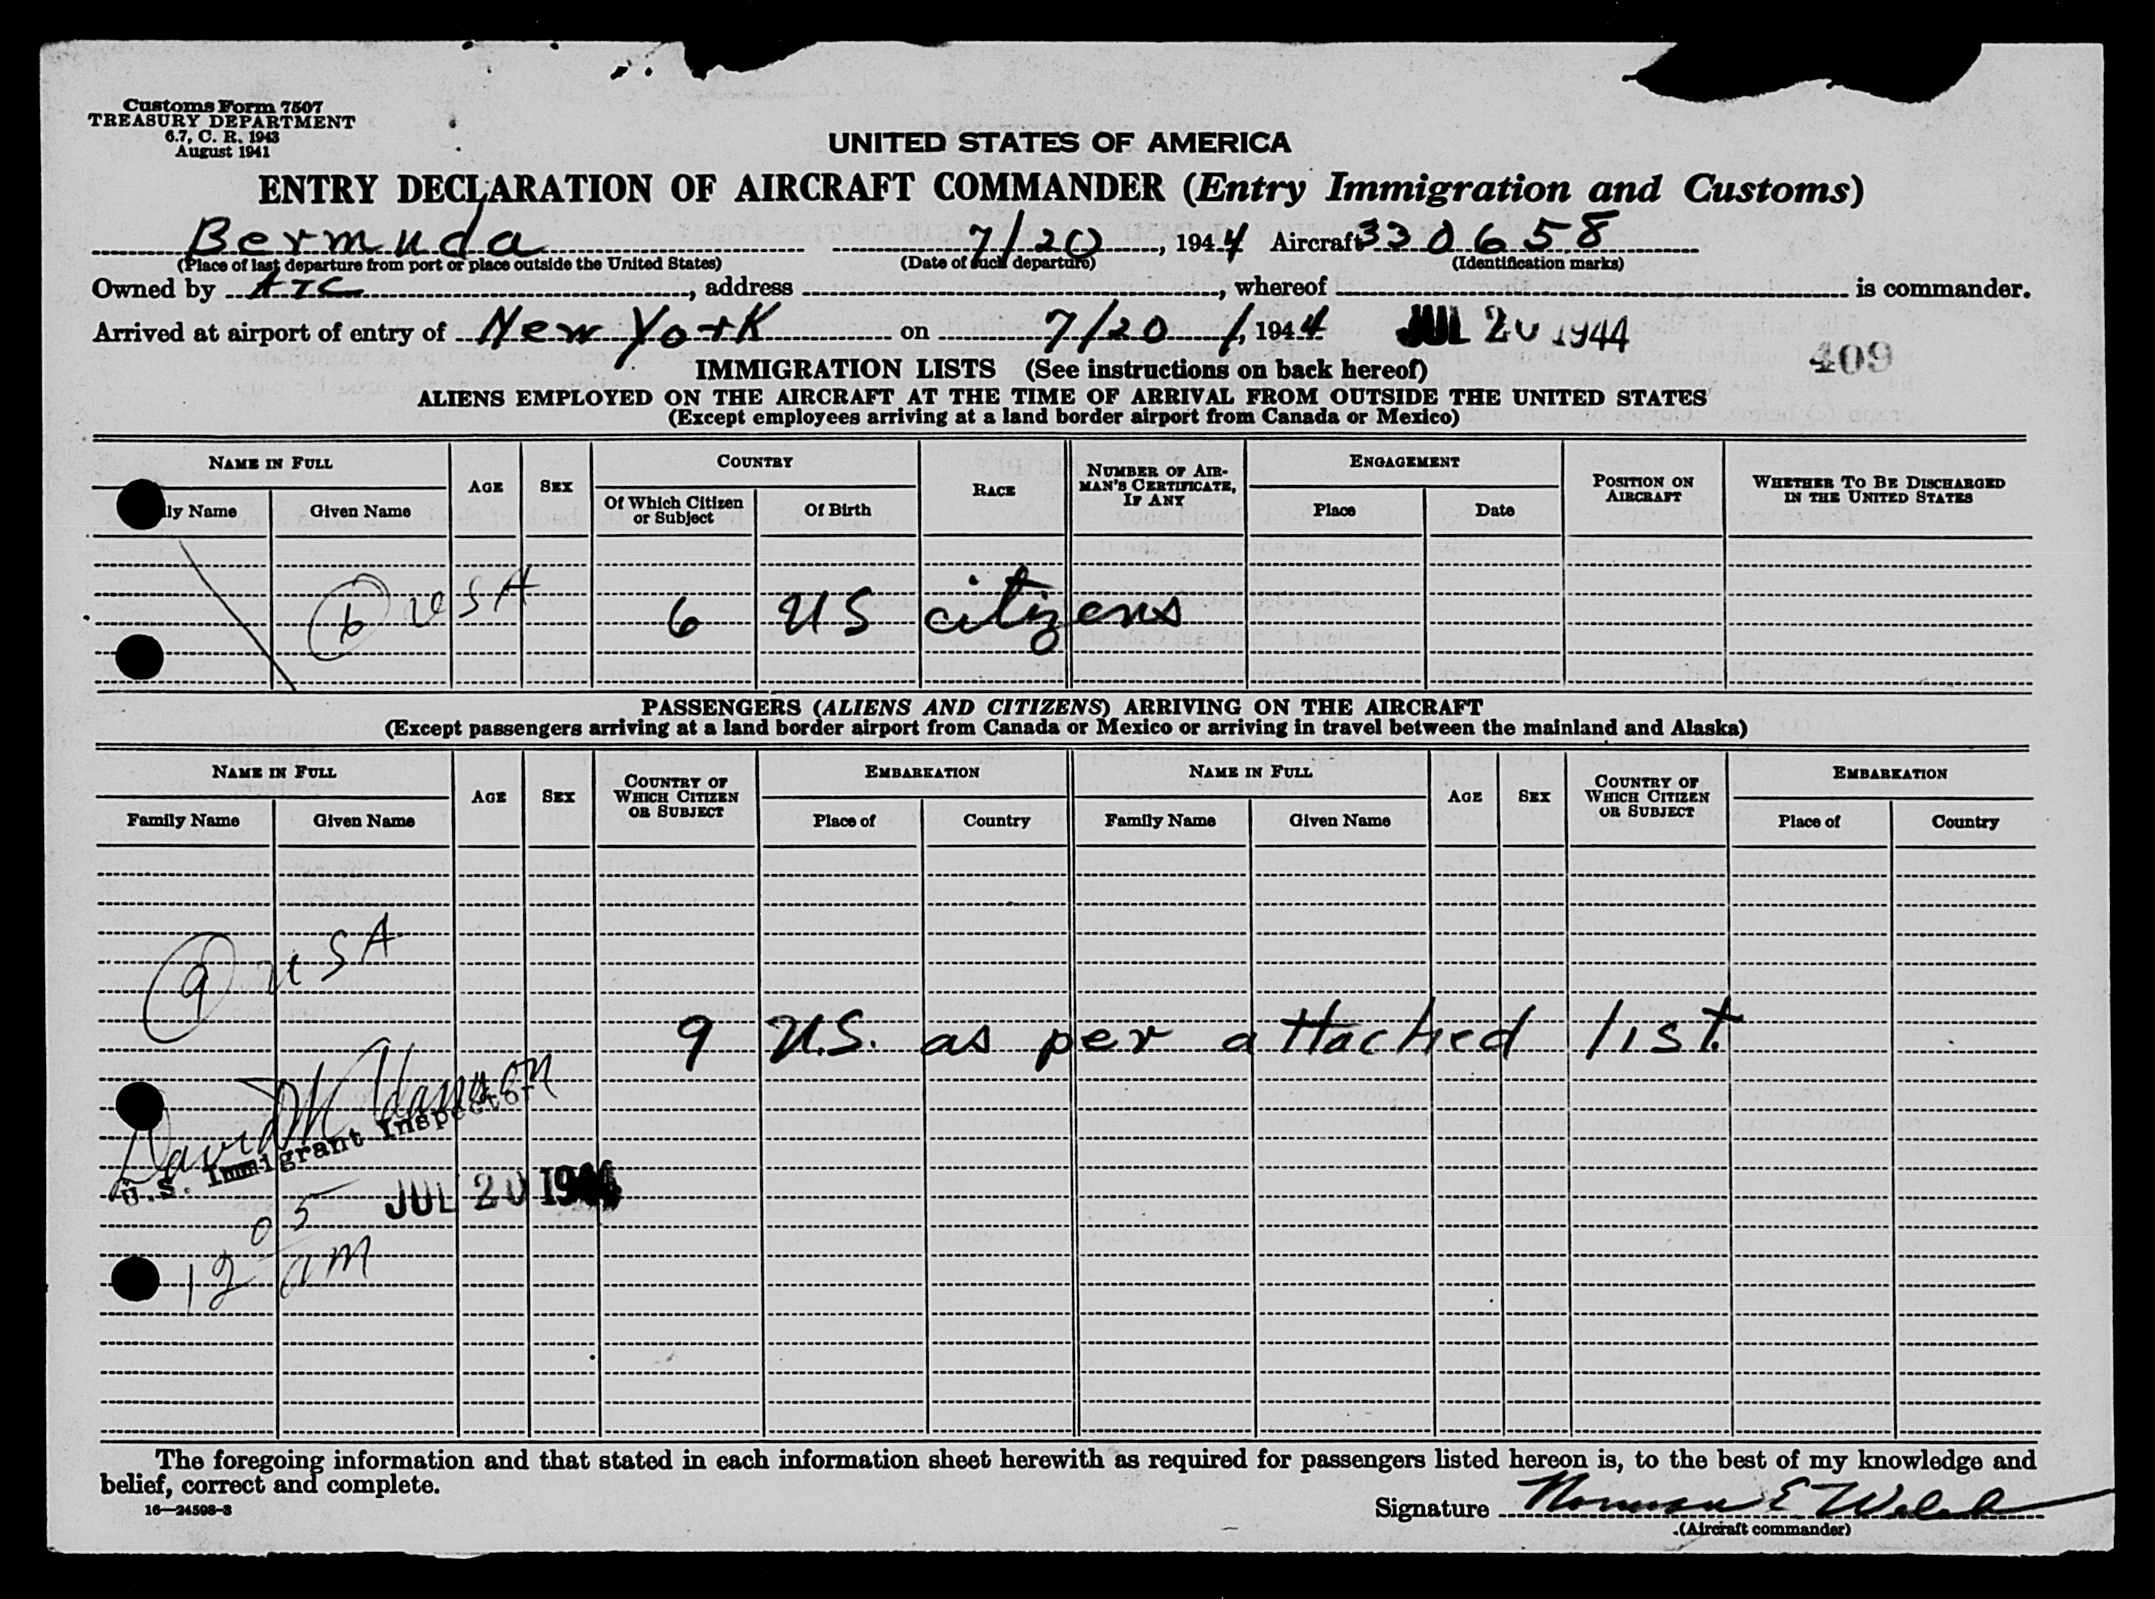 Customs Form 7507
TREASURY DEPARTMENT
6.7, C. R. 1943
August 1941
UNITED STATES OF AMERICA
ENTRY DECLARATION OF AIRCRAFT COMMANDER (Entry Immigration and Customs)
Bermuda 7/20, 1944 Aircraft 330658
(Place of last departure from port or place outside the United States) (Date of such departure) (Identification marks)
Owned by ATC, address , whereof is commander.
Arrived at airport of entry of New York on 7/20/, 1944 JUL 20 1944
409
IMMIGRATION LISTS (See instructions on back hereof)
ALIENS EMPLOYED ON THE AIRCRAFT AT THE TIME OF ARRIVAL FROM OUTSIDE THE UNITED STATES
(Except employees arriving at a land border airport from Canada or Mexico)
NAME IN FULL AGE SEX COUNTRY RACE NUMBER OF AIRMAN'S CERTIFICATE, IF ANY ENGAGEMENT POSITION ON AIRCRAFT WHETHER TO BE DISCHARGED IN THE UNITED STATES
ly Name Given Name Of Which Citizen or Subject Of Birth Place Date
6 USA 6 US citizens
PASSENGERS (ALIENS AND CITIZENS) ARRIVING ON THE AIRCRAFT
(Except passengers arriving at a land border airport from Canada or Mexico or arriving in travel between the mainland and Alaska)
NAME IN FULL AGE SEX COUNTRY OF WHICH CITIZEN OR SUBJECT EMBARKATION NAME IN FULL AGE SEX COUNTRY OF WHICH CITIZEN OR SUBJECT EMBARKATION
Family Name Given Name Place of Country Family Name Given Name Place of Country
9 USA
9 U.S. as per attached list.
David M
U.S. Immigrant Inspector
JUL 20 1944
12 05 am
The foregoing information and that stated in each information sheet herewith as required for passengers listed hereon is, to the best of my knowledge and
belief, correct and complete.
16—24598-3
Signature Norman E
(Aircraft commander)